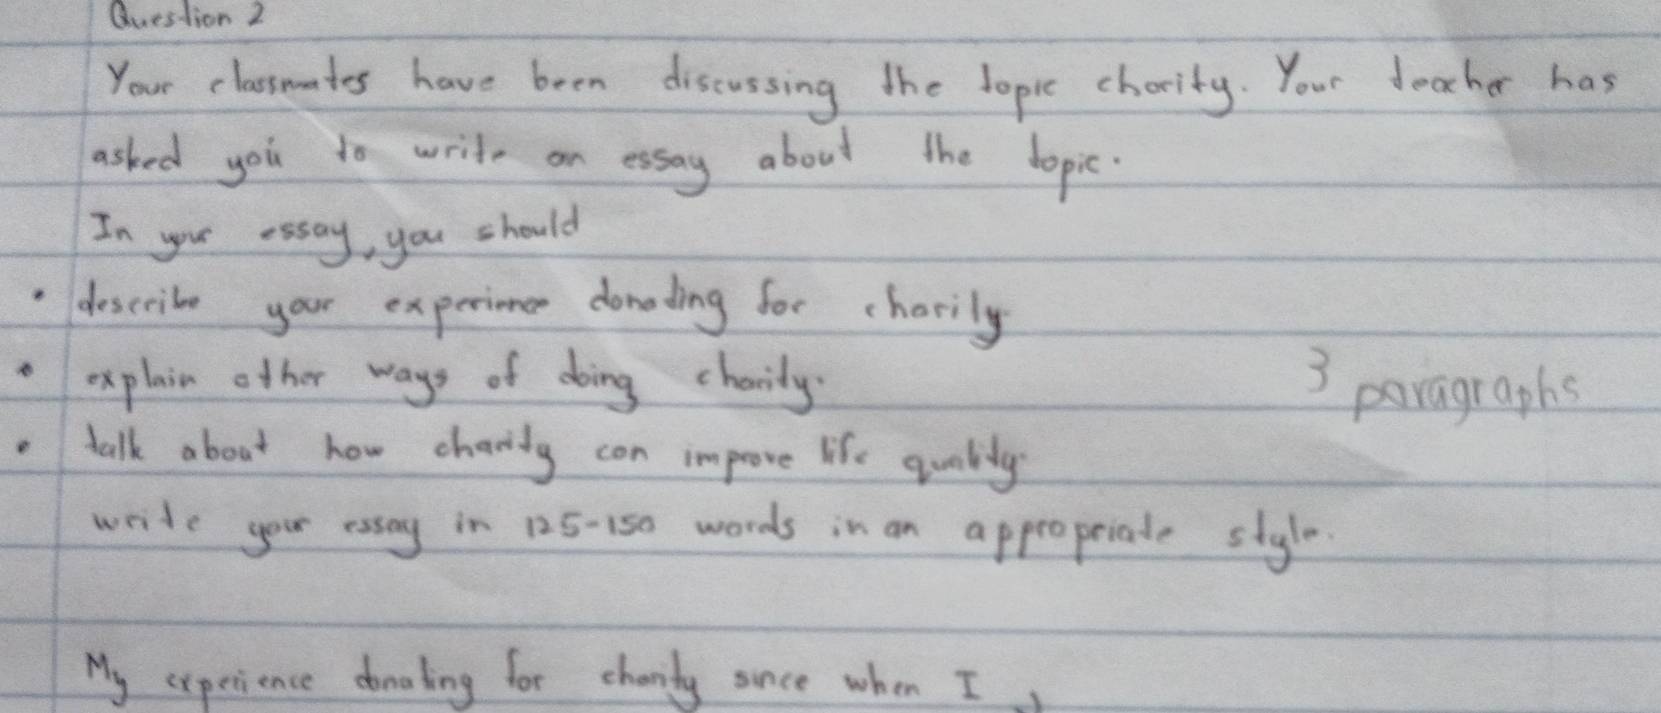 Question 2
Your classmates have been discussing the topic charity. Your teacher has
asked you to write an essay about the topic.
In your essay, you should
• describe your experience donating for charity.
• explain other ways of doing charity.
3 paragraphs
• talk about how charity can improve life quality.
write your essay in 125-150 words in an appropriate style.
My experience donating for charity since when I